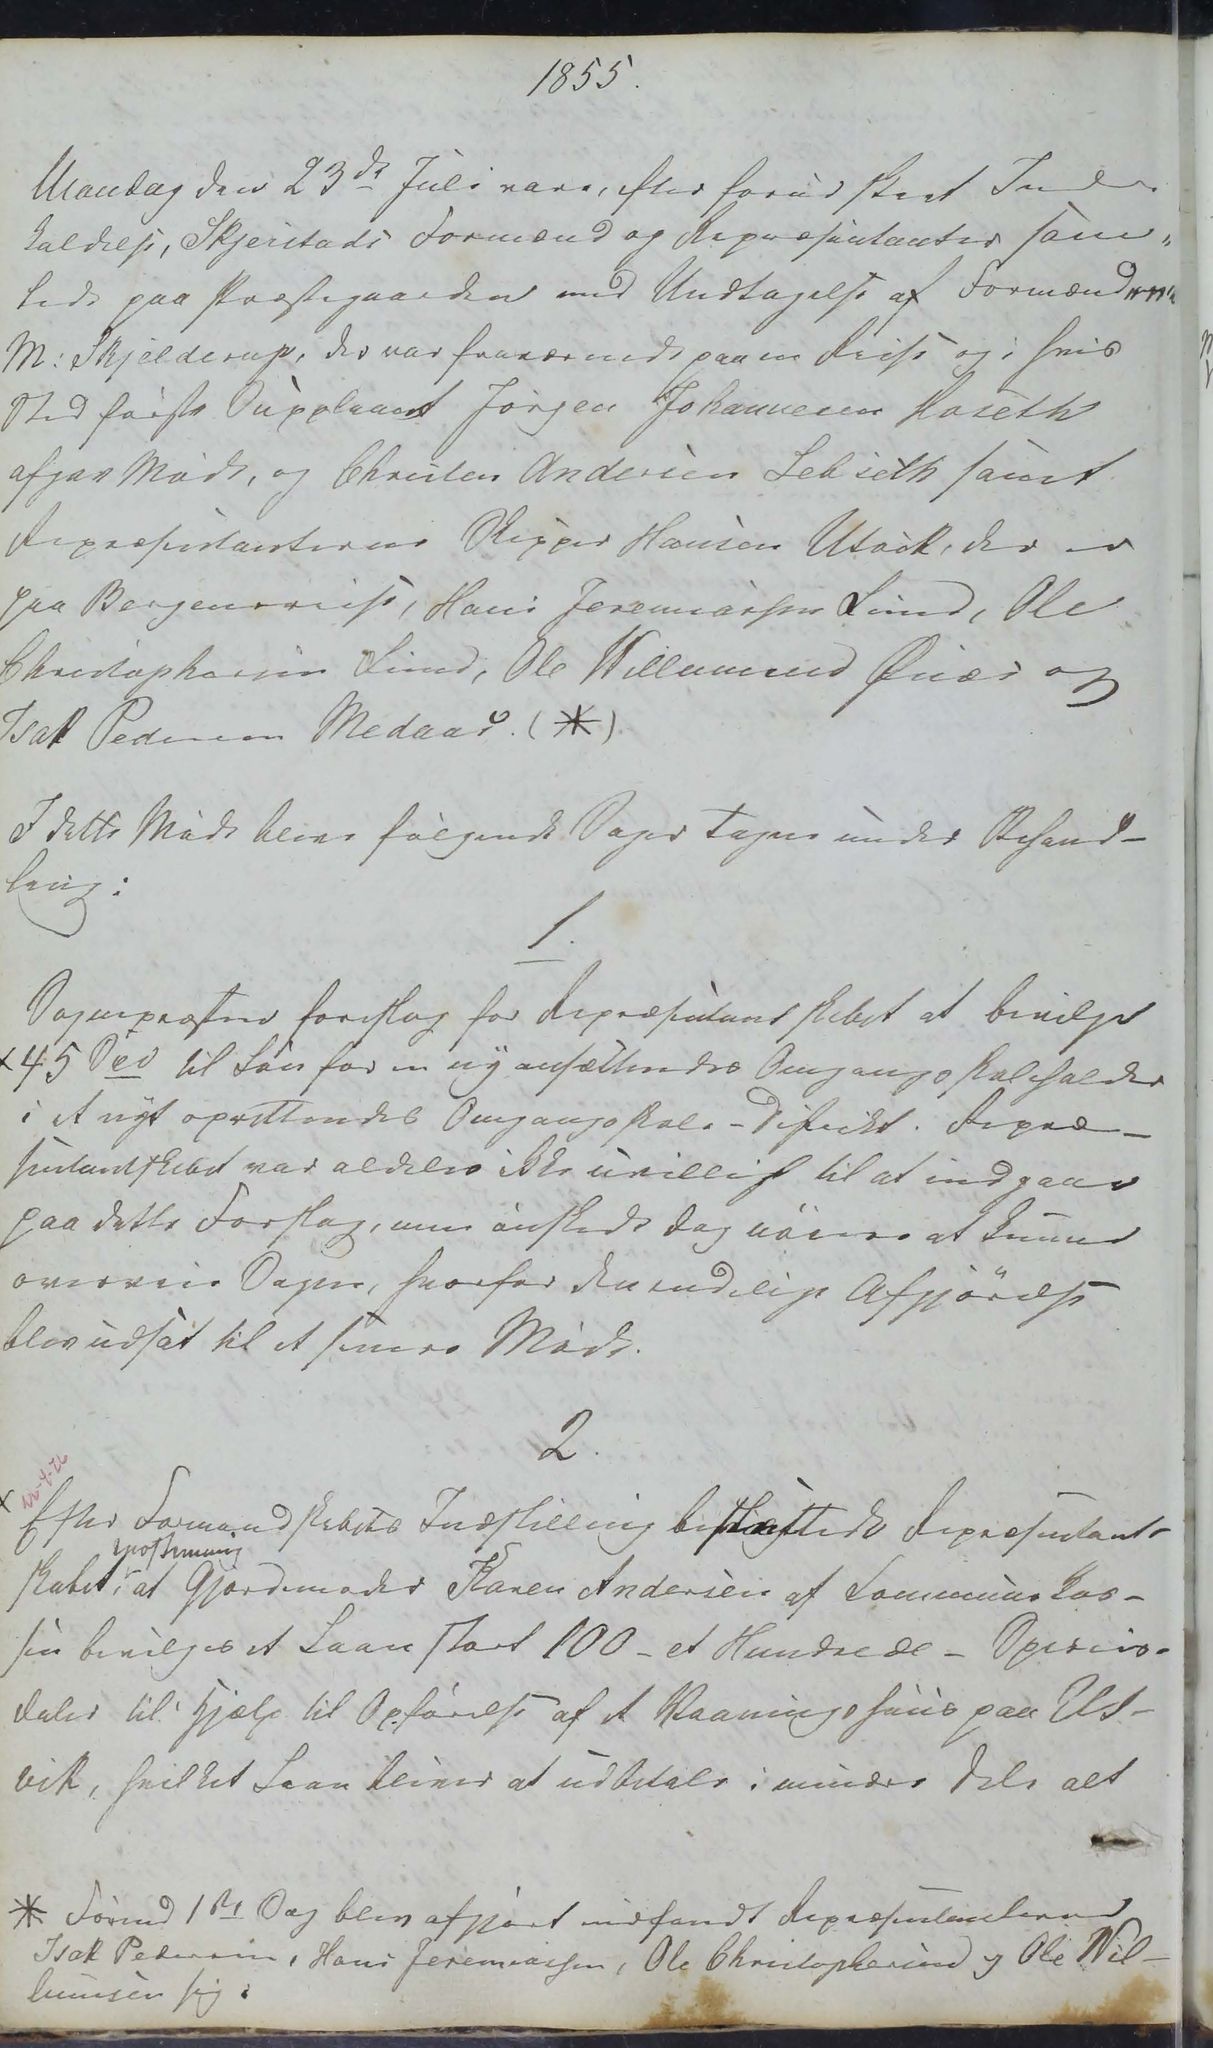 1855.
Mandag den 23de Juli vare, efter forud skeet Ind-
kaldelse, Skjerstads Formænd og Repræsentanter sam-
lede paa Præstegaarden med Undtagelse af Formændene
M: Skjelderup, der var fraværende paa en Reise og i hvis
Sted første Suppleant Jörgen Johannesen Koseth
afgav Møde, og Christen Andersen Lebseth samt
Repræsentanterne Skipper Hansen Utvik, der er
paa Bergensreise, Hans Jeremiassen Lund, Ole
Christophersen Lund, Ole Willumsen Øines og
Isak Pedersen Medaas. (*)
I dette Møde bleve følgende Sager tagne under Behand-
ling:
1.
Sognepræsten foreslog for Repræsentantskabet at bevilge
x 45 Spd til Løn for en ny ansættendes Omgangsskoleholder
i et nyt oprettendes Omgangsskole-Distrikt. Repræ-
sentantskabet var aldeles ikke uvilligt til at indgaae
paa dette Forslag, men ønskede dog nöiere at kunne
overveie Sagen, hvorfor den endelige Afgjörelse
blev udsat til et senere Møde.
2.
x Efter Formandskabets Indstilling besluttede Repræsentant-
skabet, at Gjordemoder Karen Andersen af Communekas-
sen bevilges et Laan stort 100 - et Hundrede - Species-
daler til Hjælp til Opførelse af et Vaaningshuus paa Ut-
vik, hvilket Laan bliver at udbetale i mindre Dele alt
* Førend 1ste Sag blev afgjort indfandt Repræsentanterne
Isak Pedersen, Hans Jeremiassen, Ole Christophersen og Ole Wil-
lumsen sig.